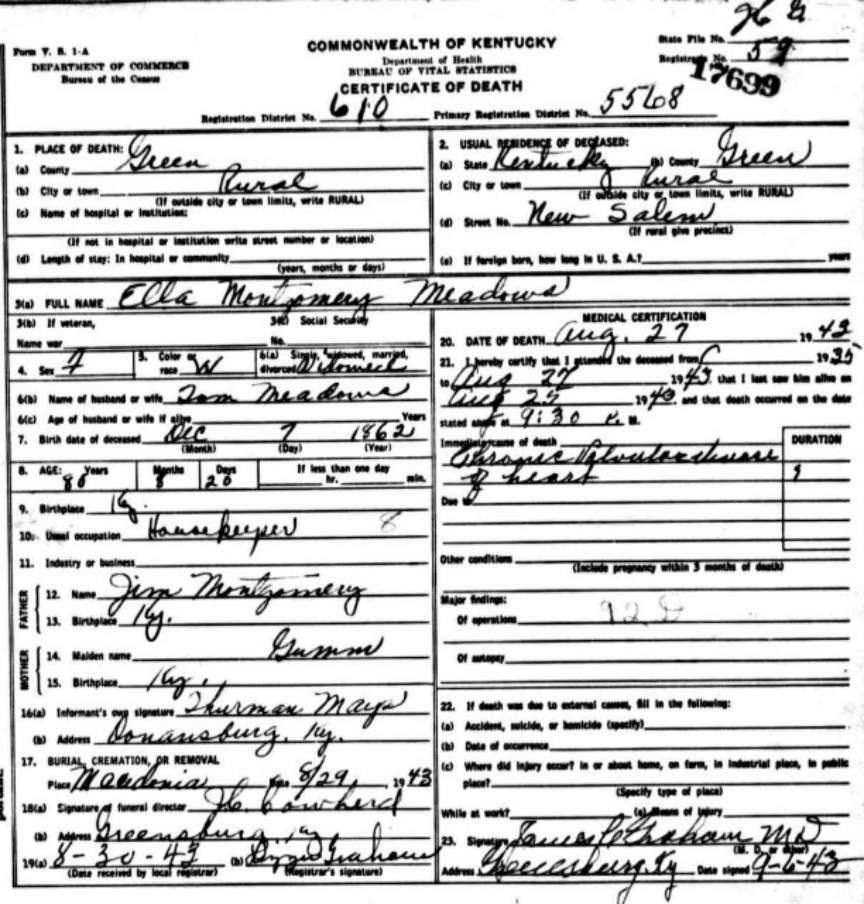 Form V. S. 1-A
DEPARTMENT OF COMMERCE
Bureau of the Census
COMMONWEALTH OF KENTUCKY
Department of Health
BUREAU OF VITAL STATISTICS
CERTIFICATE OF DEATH
State File No.
Registrar's No. 59
17699
Registration District No. 610 Primary Registration District No. 5568
1. PLACE OF DEATH:
(a) County Green
(b) City or town Rural
(If outside city or town limits, write RURAL)
(c) Name of hospital or institution:
(If not in hospital or institution write street number or location)
(d) Length of stay: In hospital or community
(years, months or days)
2. USUAL RESIDENCE OF DECEASED:
(a) State Kentucky (b) County Green
(c) City or town Rural
(If outside city or town limits, write RURAL)
(d) Street No. New Salem
(If rural give precinct)
(e) If foreign born, how long in U. S. A.? years
3(a) FULL NAME Ella Montgomery Meadows
3(b) If veteran,
Name war
3(c) Social Security
No.
4. Sex F
5. Color or race W
6(a) Single, widowed, married, divorced Widowed
6(b) Name of husband or wife Tom Meadows
6(c) Age of husband or wife if alive Years
7. Birth date of deceased Dec 7 1862
(Month) (Day) (Year)
8. AGE: Years Months Days If less than one day
80 8 20 hr. min.
9. Birthplace Ky.
10. Usual occupation Housekeeper 8
11. Industry or business
FATHER
12. Name Jim Montgomery
13. Birthplace Ky.
MOTHER
14. Maiden name Gumm
15. Birthplace Ky.
16(a) Informant's own signature Thurman Mays
(b) Address Donansburg, Ky.
17. BURIAL, CREMATION, OR REMOVAL
Place Macedonia Date 8/29, 1943
18(a) Signature of funeral director Cowherd
(b) Address Greensburg, Ky
19(a) 8-30-43 (b) Graham
(Date received by local registrar) (Registrar's signature)
MEDICAL CERTIFICATION
20. DATE OF DEATH Aug. 27 1943
21. I hereby certify that I attended the deceased from 1935
to Aug 27 1943, that I last saw him alive on
Aug 25 1943, and that death occurred on the date
stated above at 9:30 P. M.
Immediate cause of death DURATION
Chronic Valvular disease
of heart
Due to
Other conditions
(Include pregnancy within 3 months of death)
Major findings:
Of operations 92 D
Of autopsy
22. If death was due to external causes, fill in the following:
(a) Accident, suicide, or homicide (specify)
(b) Date of occurrence
(c) Where did injury occur? In or about home, on farm, in industrial place, in public
place?
(Specify type of place)
While at work? (e) Means of injury
23. Signature James C Graham MD
(M. D. or other)
Address Greensburg, Ky Date signed 9-6-43